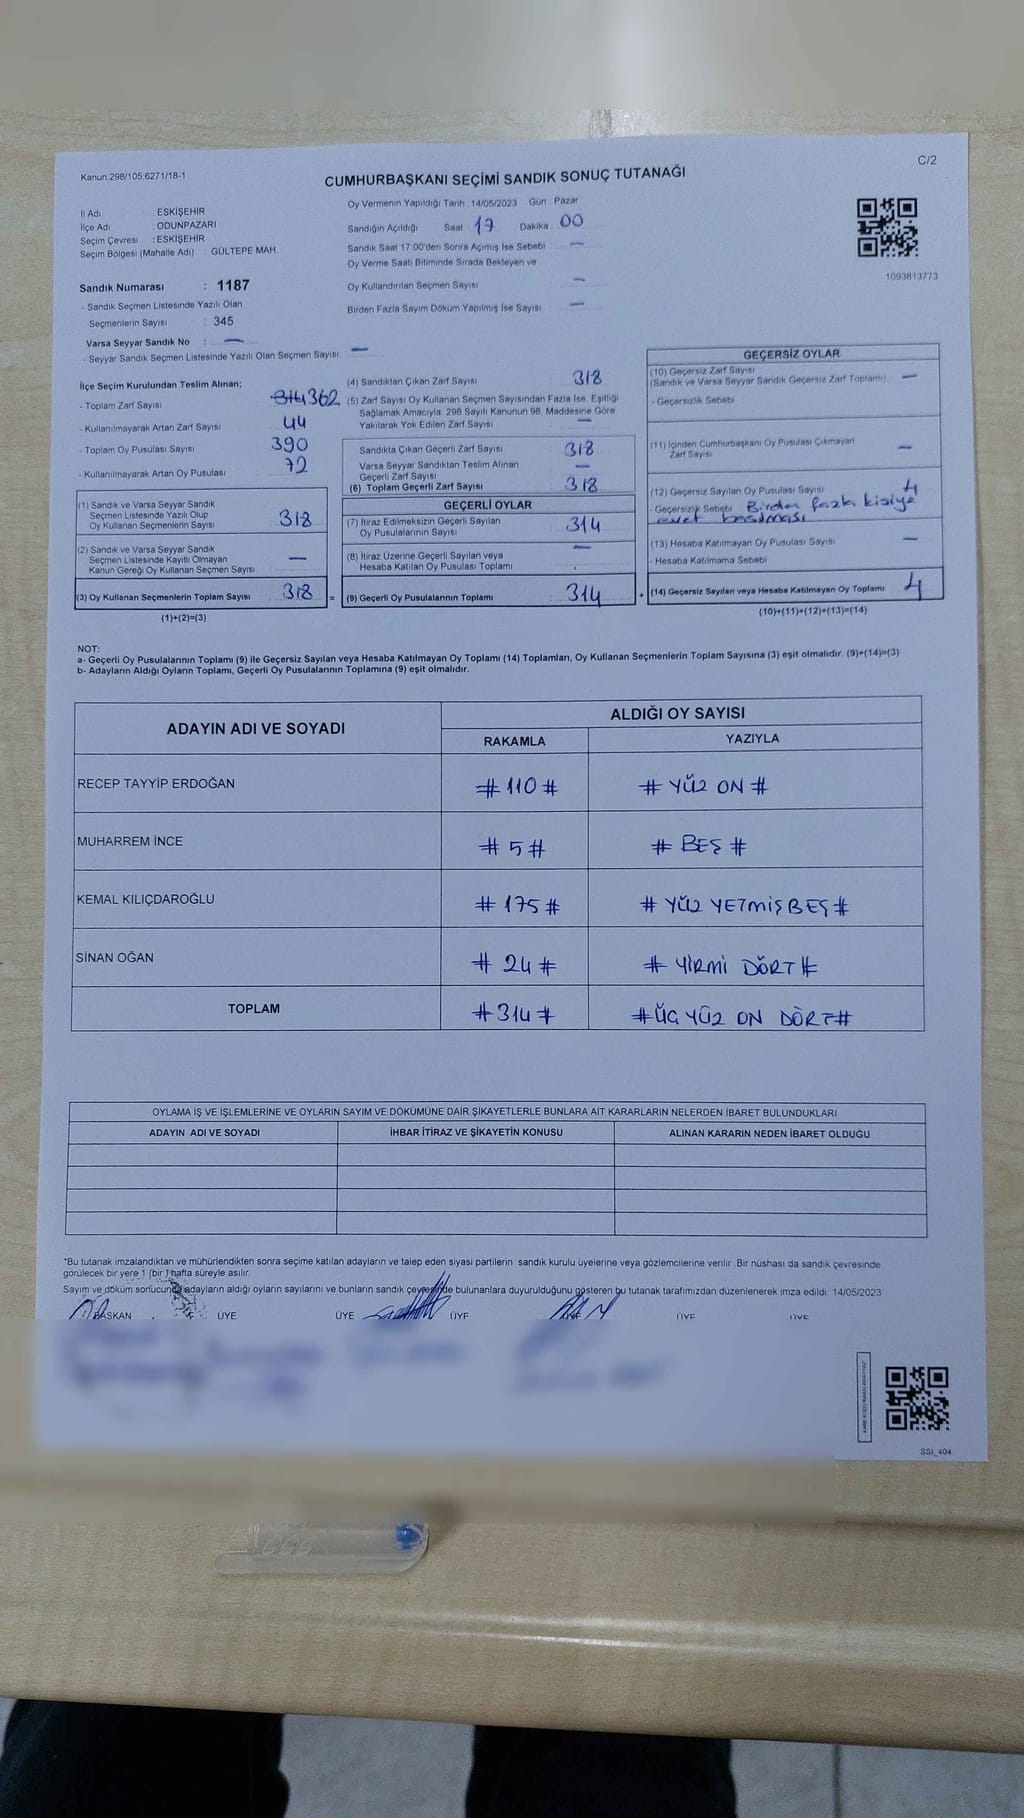 Kanun 298/105;6271/18-1
C/2
CUMHURBAŞKANI SEÇİMİ SANDIK SONUÇ TUTANAĞI
İl Adı : ESKİŞEHİR
İlçe Adı : ODUNPAZARI
Seçim Çevresi : ESKİŞEHİR
Seçim Bölgesi (Mahalle Adı) GÜLTEPE MAH.
Sandık Numarası : 1187
- Sandık Seçmen Listesinde Yazılı Olan
Seçmenlerin Sayısı : 345
Varsa Seyyar Sandık No : —
- Seyyar Sandık Seçmen Listesinde Yazılı Olan Seçmen Sayısı —
Oy Vermenin Yapıldığı Tarih : 14/05/2023 Gün : Pazar
Sandığın Açıldığı Saat 17 Dakika 00
Sandık Saat 17.00'den Sonra Açımış İse Sebebi —
Oy Verme Saati Bitiminde Sırada Bekleyen ve
Oy Kullandırılan Seçmen Sayısı —
Birden Fazla Sayım Döküm Yapılmış İse Sayısı —
1093813773
İlçe Seçim Kurulundan Teslim Alınan;
- Toplam Zarf Sayısı 362
- Kullanılmayarak Artan Zarf Sayısı 44
- Toplam Oy Pusulası Sayısı 390
- Kullanılmayarak Artan Oy Pusulası 72
(1) Sandık ve Varsa Seyyar Sandık
Seçmen Listesinde Yazılı Olup
Oy Kullanan Seçmenlerin Sayısı 318
(2) Sandık ve Varsa Seyyar Sandık
Seçmen Listesinde Kayıtlı Olmayan
Kanun Gereği Oy Kullanan Seçmen Sayısı —
(3) Oy Kullanan Seçmenlerin Toplam Sayısı 318 =
(1)+(2)=(3)
(4) Sandıktan Çıkan Zarf Sayısı 318
(5) Zarf Sayısı Oy Kullanan Seçmen Sayısından Fazla İse, Eşitliği
Sağlamak Amacıyla, 298 Sayılı Kanunun 98. Maddesine Göre
Yakılarak Yok Edilen Zarf Sayısı —
Sandıkta Çıkan Geçerli Zarf Sayısı 318
Varsa Seyyar Sandıktan Teslim Alınan
Geçerli Zarf Sayısı —
(6) Toplam Geçerli Zarf Sayısı 318
GEÇERLİ OYLAR
(7) İtiraz Edilmeksizin Geçerli Sayılan
Oy Pusulalarının Sayısı 314
(8) İtiraz Üzerine Geçerli Sayılan veya
Hesaba Katılan Oy Pusulası Toplamı —
(9) Geçerli Oy Pusulalarının Toplamı 314 +
GEÇERSİZ OYLAR
(10) Geçersiz Zarf Sayısı
(Sandık ve Varsa Seyyar Sandık Geçersiz Zarf Toplamı) —
- Geçersizlik Sebebi
(11) İçinden Cumhurbaşkanı Oy Pusulası Çıkmayan
Zarf Sayısı —
(12) Geçersiz Sayılan Oy Pusulası Sayısı 4
- Geçersizlik Sebebi Birden fazla kişiye
evet basılması
(13) Hesaba Katılmayan Oy Pusulası Sayısı —
- Hesaba Katılmama Sebebi
(14) Geçersiz Sayılan veya Hesaba Katılmayan Oy Toplamı 4
(10)+(11)+(12)+(13)=(14)
NOT:
a- Geçerli Oy Pusulalarının Toplamı (9) ile Geçersiz Sayılan veya Hesaba Katılmayan Oy Toplamı (14) Toplamları, Oy Kullanan Seçmenlerin Toplam Sayısına (3) eşit olmalıdır. (9)+(14)=(3)
b- Adayların Aldığı Oyların Toplamı, Geçerli Oy Pusulalarının Toplamına (9) eşit olmalıdır.
ADAYIN ADI VE SOYADI
ALDIĞI OY SAYISI
RAKAMLA YAZIYLA
RECEP TAYYİP ERDOĞAN # 110 # # YÜZ ON #
MUHARREM İNCE # 5 # # BEŞ #
KEMAL KILIÇDAROĞLU # 175 # # YÜZ YETMİŞ BEŞ #
SİNAN OĞAN # 24 # # YİRMİ DÖRT #
TOPLAM # 314 # # ÜÇ YÜZ ON DÖRT #
OYLAMA İŞ VE İŞLEMLERİNE VE OYLARIN SAYIM VE DÖKÜMÜNE DAİR ŞİKAYETLERLE BUNLARA AİT KARARLARIN NELERDEN İBARET BULUNDUKLARI
ADAYIN ADI VE SOYADI İHBAR İTİRAZ VE ŞİKAYETİN KONUSU ALINAN KARARIN NEDEN İBARET OLDUĞU
*Bu tutanak imzalandıktan ve mühürlendikten sonra seçime katılan adayların ve talep eden siyasi partilerin sandık kurulu üyelerine veya gözlemcilerine verilir. Bir nüshası da sandık çevresinde
görülecek bir yere 1 (bir ) hafta süreyle asılır.
Sayım ve döküm sonucunda adayların aldığı oyların sayılarını ve bunların sandık çevresinde bulunanlara duyurulduğunu gösteren bu tutanak tarafımızdan düzenlenerek imza edildi. 14/05/2023
BAŞKAN ÜYE ÜYE ÜYE ÜYE ÜYE ÜYE
SSI_404